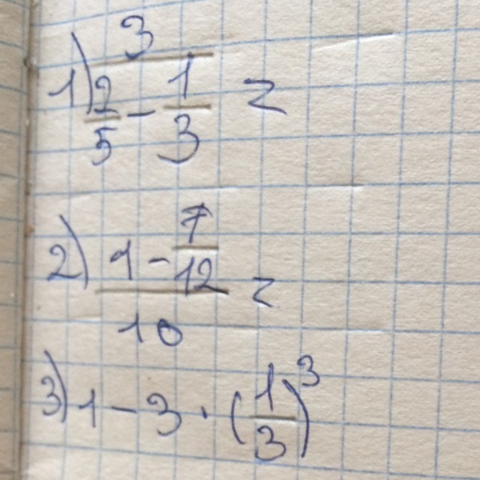 1) 3/(2/5 - 1/3) =
2) (1 - 7/12)/10 =
3) 1 - 3 · (1/3)³